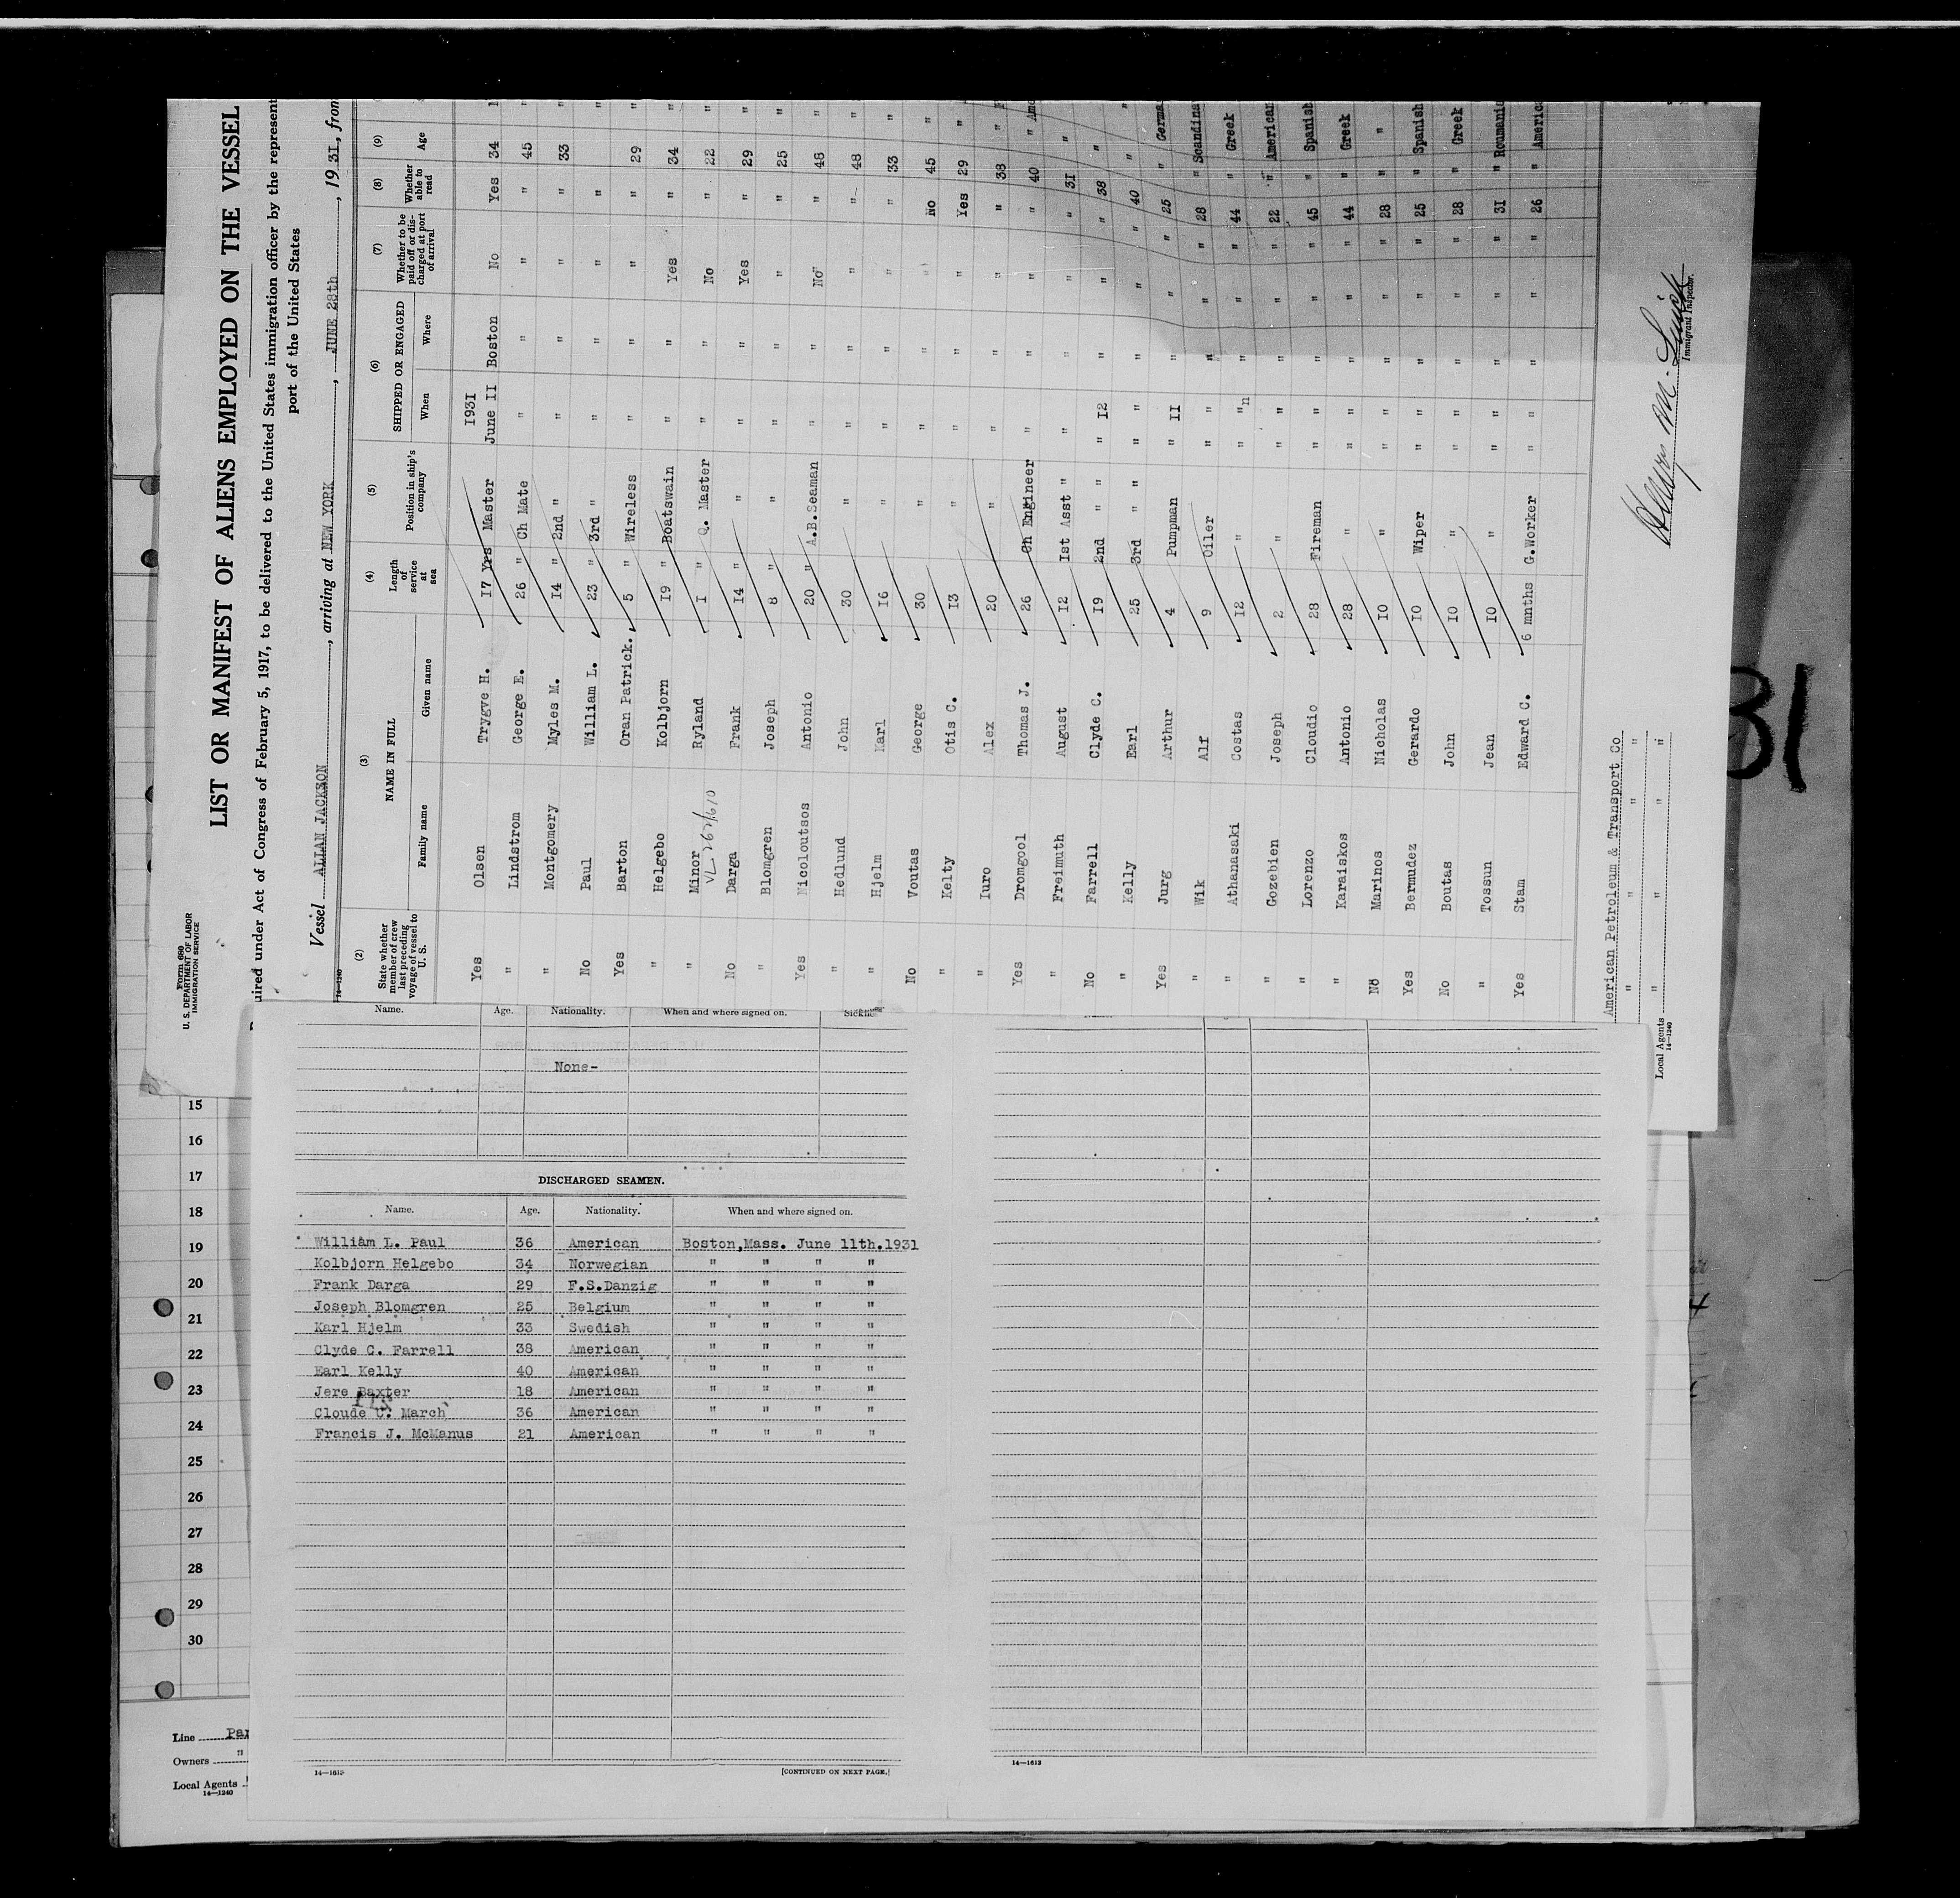 Form 680
U. S. DEPARTMENT OF LABOR
IMMIGRATION SERVICE
LIST OR MANIFEST OF ALIENS EMPLOYED ON THE VESSEL
uired under Act of Congress of February 5, 1917, to be delivered to the United States immigration officer by the represent
port of the United States
Vessel ALLAN JACKSON, arriving at NEW YORK, JUNE 28th, 1931, from
14-1240
(2) (3) (4) (5) (6) (7) (8) (9)
State whether member of crew last preceding voyage of vessel to U. S. NAME IN FULL Family name Given name Length of service at sea Position in ship's company SHIPPED OR ENGAGED When Where Whether to be paid off or discharged at port of arrival Whether able to read Age
1931
Yes Olsen Trygve H. 17 Yrs Master June II Boston No Yes 34
" Lindstrom George E. 26 " Ch Mate " " " " 45 "
" Montgomery Myles M. 14 " 2nd " " " " " 33 "
No Paul William L. 23 " 3rd " " " " " "
Yes Barton Oran Patrick. 5 " Wireless " " " " 29 "
" Helgebo Kolbjorn 19 " Boatswain " " Yes " 34 "
" Minor Ryland I " Q. Master " " No " 22 "
VL
No Darga Frank 14 " " " " Yes " 29 "
" Blomgren Joseph 8 " " " " " " 25 "
Yes Nicoloutsos Antonio 20 " A.B.Seaman " " No" " 48 "
" Hedlund John 30 " " " " " 48 "
" Hjelm Karl 16 " " " " " 33 "
No Voutas George 30 " " " " No 45 "
" Kelty Otis C. 13 " " " " Yes 29 "
" Iuro Alex 20 " " " " " 38 "
Yes Dromgool Thomas J. 26 Ch Engineer " " " " 40 " Ame
" Freimuth August 12 Ist Asst " " " " " 31 "
No Farrell Clyde C. 19 2nd " " " 12 " " " 38 "
" Kelly Earl 25 3rd " " " " " " " 40 "
Yes Jurg Arthur 4 Pumpman " II " " " 25 " Germa
" Wik Alf 9 Oiler " " " " " 28 " Scandina
" Athanasaki Costas 12 " " "n " " " 44 " Greek
" Gozebien Joseph 2 " " " " " " 22 " American
" Lorenzo Cloudio 28 Fireman " " " " " 45 " Spanish
" Karaiskos Antonio 28 " " " " " " 44 " Greek
No Marinos Nicholas 10 " " " " " " 28 " "
Yes Bermudez Gerardo 10 Wiper " " " " " 25 " Spanish
No Boutas John 10 " " " " " " 28 " Greek
" Tossun Jean 10 " " " " " " 31 " Roumania
Yes Stam Edward C. 6 mnths G.Worker " " " " " 26 " America
American Petroleum & Transport Co
" " " "
Local Agents " " " "
14-1240
Immigrant Inspector.
31
Name. Age. Nationality. When and where signed on.
None-
DISCHARGED SEAMEN.
Name. Age. Nationality. When and where signed on.
William L. Paul 36 American Boston,Mass. June 11th.1931
Kolbjorn Helgebo 34 Norwegian " " " "
Frank Darga 29 F.S.Danzig " " " "
Joseph Blomgren 25 Belgium " " " "
Karl Hjelm 33 Swedish " " " "
Clyde C. Farrell 38 American " " " "
Earl Kelly 40 American " " " "
Jere Baxter 18 American " " " "
Cloude C. March 36 American " " " "
Francis J. McManus 21 American " " " "
14-1613 [CONTINUED ON NEXT PAGE.]
14-1613
15
16
17
18
19
20
21
22
23
24
25
26
27
28
29
30
Line Pan
Owners "
Local Agents
14-1240